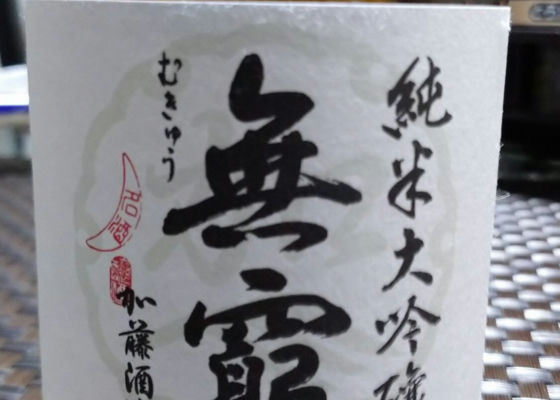 純米大吟醸
無窮
むきゅう
加藤酒